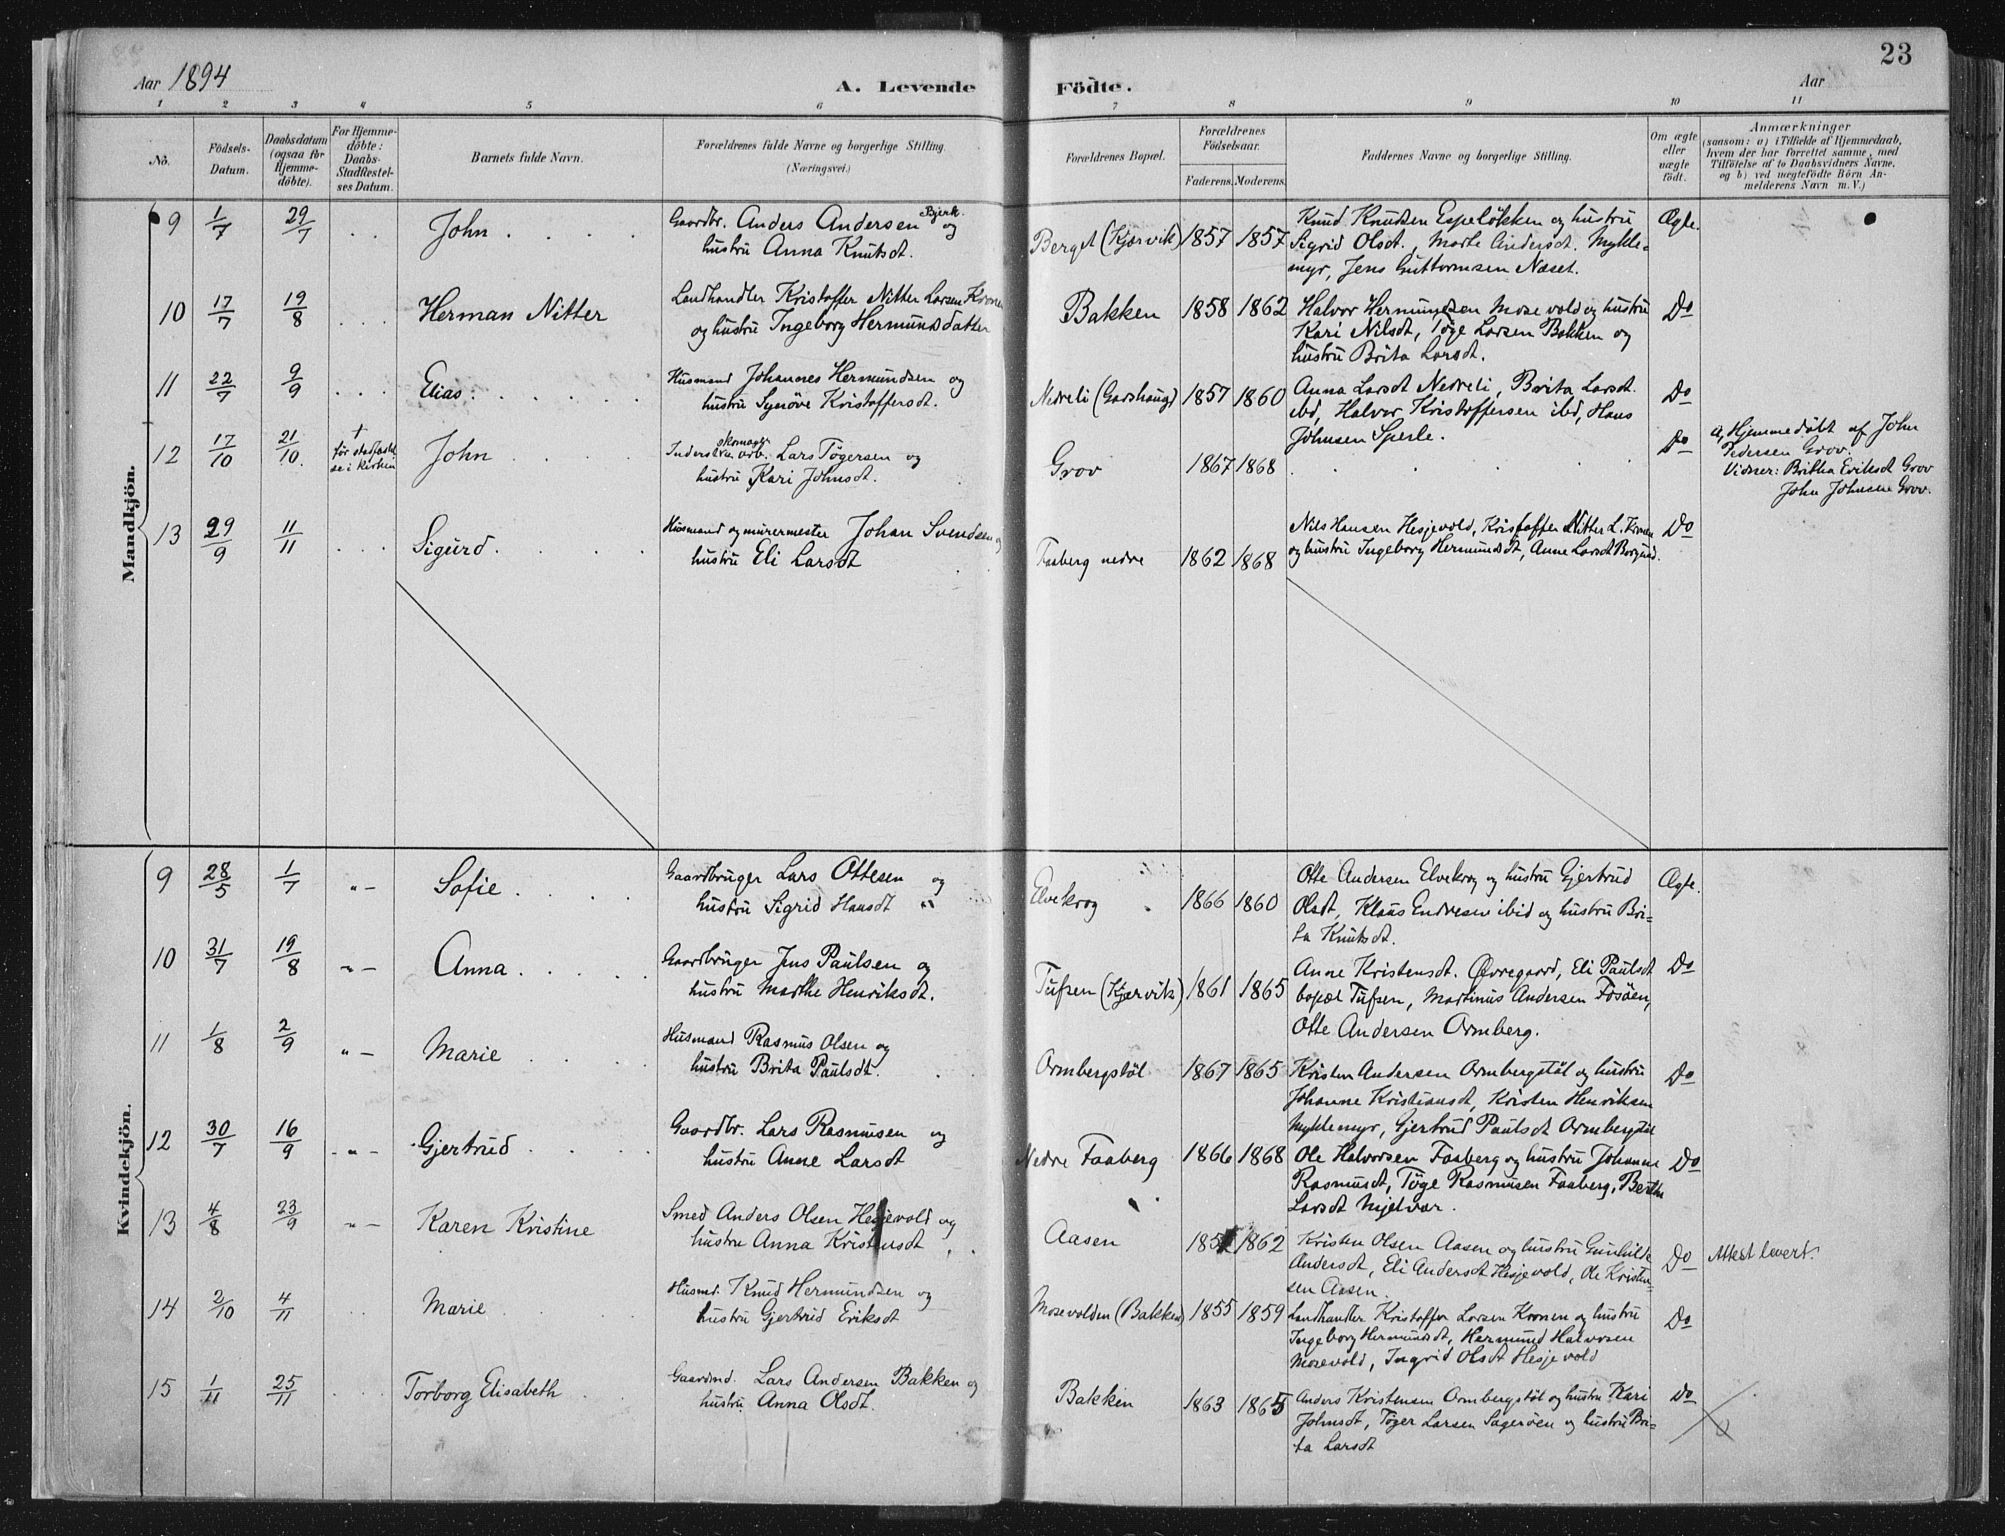 23
Aar 1894
A. Levende
Födte.
Aar
1 2 3 4 5 6 7 8 9 10 11
No.
Födsels-
Datum.
Daabsdatum
(ogsaa for
Hjemme-
döbte).
For Hjemme-
döbte:
Daabs-
Stadfæstel-
ses Datum.
Barnets fulde Navn.
Forældrenes fulde Navne og borgerlige Stilling.
(Næringsvei.)
Forældrenes Bopæl.
Forældrenes
Födselsaar.
Faderens. Moderens.
Faddernes Navne og borgerlige Stilling.
Om ægte
eller
uægte
födt.
Anmærkninger
(saasom: a) i Tilfælde af Hjemmedaab,
hvem der har forrettet samme, med
Tilföielse af to Daabsvidners Navne,
og b) ved uægtefödte Börn An-
melderens Navn m. V.)
Mandkjön.
9 1/7 29/7 . . John . . . . Gaardbr. Anders Andersen Bjerk. og
hustru Anna Knutsdt.
Berget (Kjærvik) 1857 1857
Knud Knudsen Espeløkken og hustru
Sigrid Olsdt., Marte Andersdt. Mykle-
myr, Jens Guttormsen Næset.
Ægte.
10 17/7 19/8 . . . Herman Nitter
Landhandler Kristoffer Nitter Larsen Kronen
og hustru Ingeborg Hermundsdatter
Bakken 1858 1862
Halvor Hermundsen Mosevold og hustru
Kari Nilsdt, Töge Larsen Bakken og
hustru Brita Larsdt.
Do
11 22/7 9/9 . . . Elias. . . . .
Husmand Johannes Hermundsen og
hustru Synøve Kristoffersdt.
Nedreli (Gashaug) 1857 1860
Anna Larsdt Nedreli, Brita Larsdt.
ibd, Halvor Kristoffersen ibd, Hans
Johnsen Sperle.
Do
12 17/10 21/10. † før stadfæstel
se i kirken
John . . . .
skomager
Lars Tögersen og
hustru Kari Johnsdt.
Grov 1867 1868 . . . . .
Do
a, Hjemmedöbt af John
Pedersen Grov.
Vidner: Britha Eriksdt Grov
John Johnsen Grov.
13 29/9 11/11 . . . Sigurd. . . . .
Husmand og murermester Johan Svendsen og
hustru Eli Larsdt
Faaberg nedre 1862 1868
Nils Hansen Hesjevold, Kristoffer Nitter L. Kronen
og hustru Ingeborg Hermundsdt, Anne Larsdt Borgund.
Do
Kvindekjön.
9 28/5 1/7 "- Sofie . . . .
Gaardbruger Lars Ottesen og
hustru Sigrid Hansdt "
Elvekrog . 1866 1860
Otte Andersen Elvekrog og hustru Gjertrud
Olsdt, Klaus Endresen ibid og hustru Bri-
ta Knutsdt.
Ægte.
10 31/7 19/8 "- Anna . . . . .
Gaardbruger Jens Paulsen og
hustru Marthe Henriksdt.
Tufsen (Kjærvik) 1861 1865
Anne Kristensdt. Øvregaard, Eli Paulsdt
bopæl Tufsen, Martinus Andersen Fosøen,
Otte Andersen Ormberg.
Do
11 1/8 2/9 "- Marie . . . .
Husmand Rasmus Olsen og
hustru Brita Paulsdt.
Ormbergstöl 1867 1865
Kristen Andersen Ormbergstöl og hustru
Johanne Kristiansdt, Kristen Henriksen
Myklemyr, Gjertrud Paulsdt Ormbergstöl
Do
12 30/7 16/9 -"- Gjertrud . . . .
Gaardbr. Lars Rasmusen og
hustru Anne Larsdt
Nedre Faaberg 1866 1868
Ole Halvorsen Faaberg og hustru Johanne
Rasmusdt, Töge Rasmusen Faaberg, Berthe
Larsdt Mjelvar.
Do
13 4/8 23/9 "- Karen Kristine
Smed Anders Olsen Hesjevold og
hustru Anna Kristensdt . .
Aasen 1862
Kristen Olsen Aasen og hustru Gunhilde
Andersdt, Eli Andersdt Hesjevold, Ole Kristen-
sen Aasen.
Do
Attest levert.
14 2/10 4/11 . . Marie . .
Husmd. Knud Hermundsen og
hustru Gjertrud Eriksdt
Mosevolden (Bakken) 1855 1859
Landhandler Kristoffer Larsen Kronen og hustru
Ingeborg Hermundsdt, Hermund Halvorsen
Mosevold, Ingrid Olsdt Hesjevold
Do
15 1/11 25/11 . . . Torborg Elisabeth . .
Gaardmd. Lars Andersen Bakken og
hustru Anna Olsdt.
Bakken 1863 1865
Anders Kristensen Ormbergstöl og hustru Kari
Johnsdt, Töger Larsen Sagerøen og hustru Bri-
ta Larsdt
Do